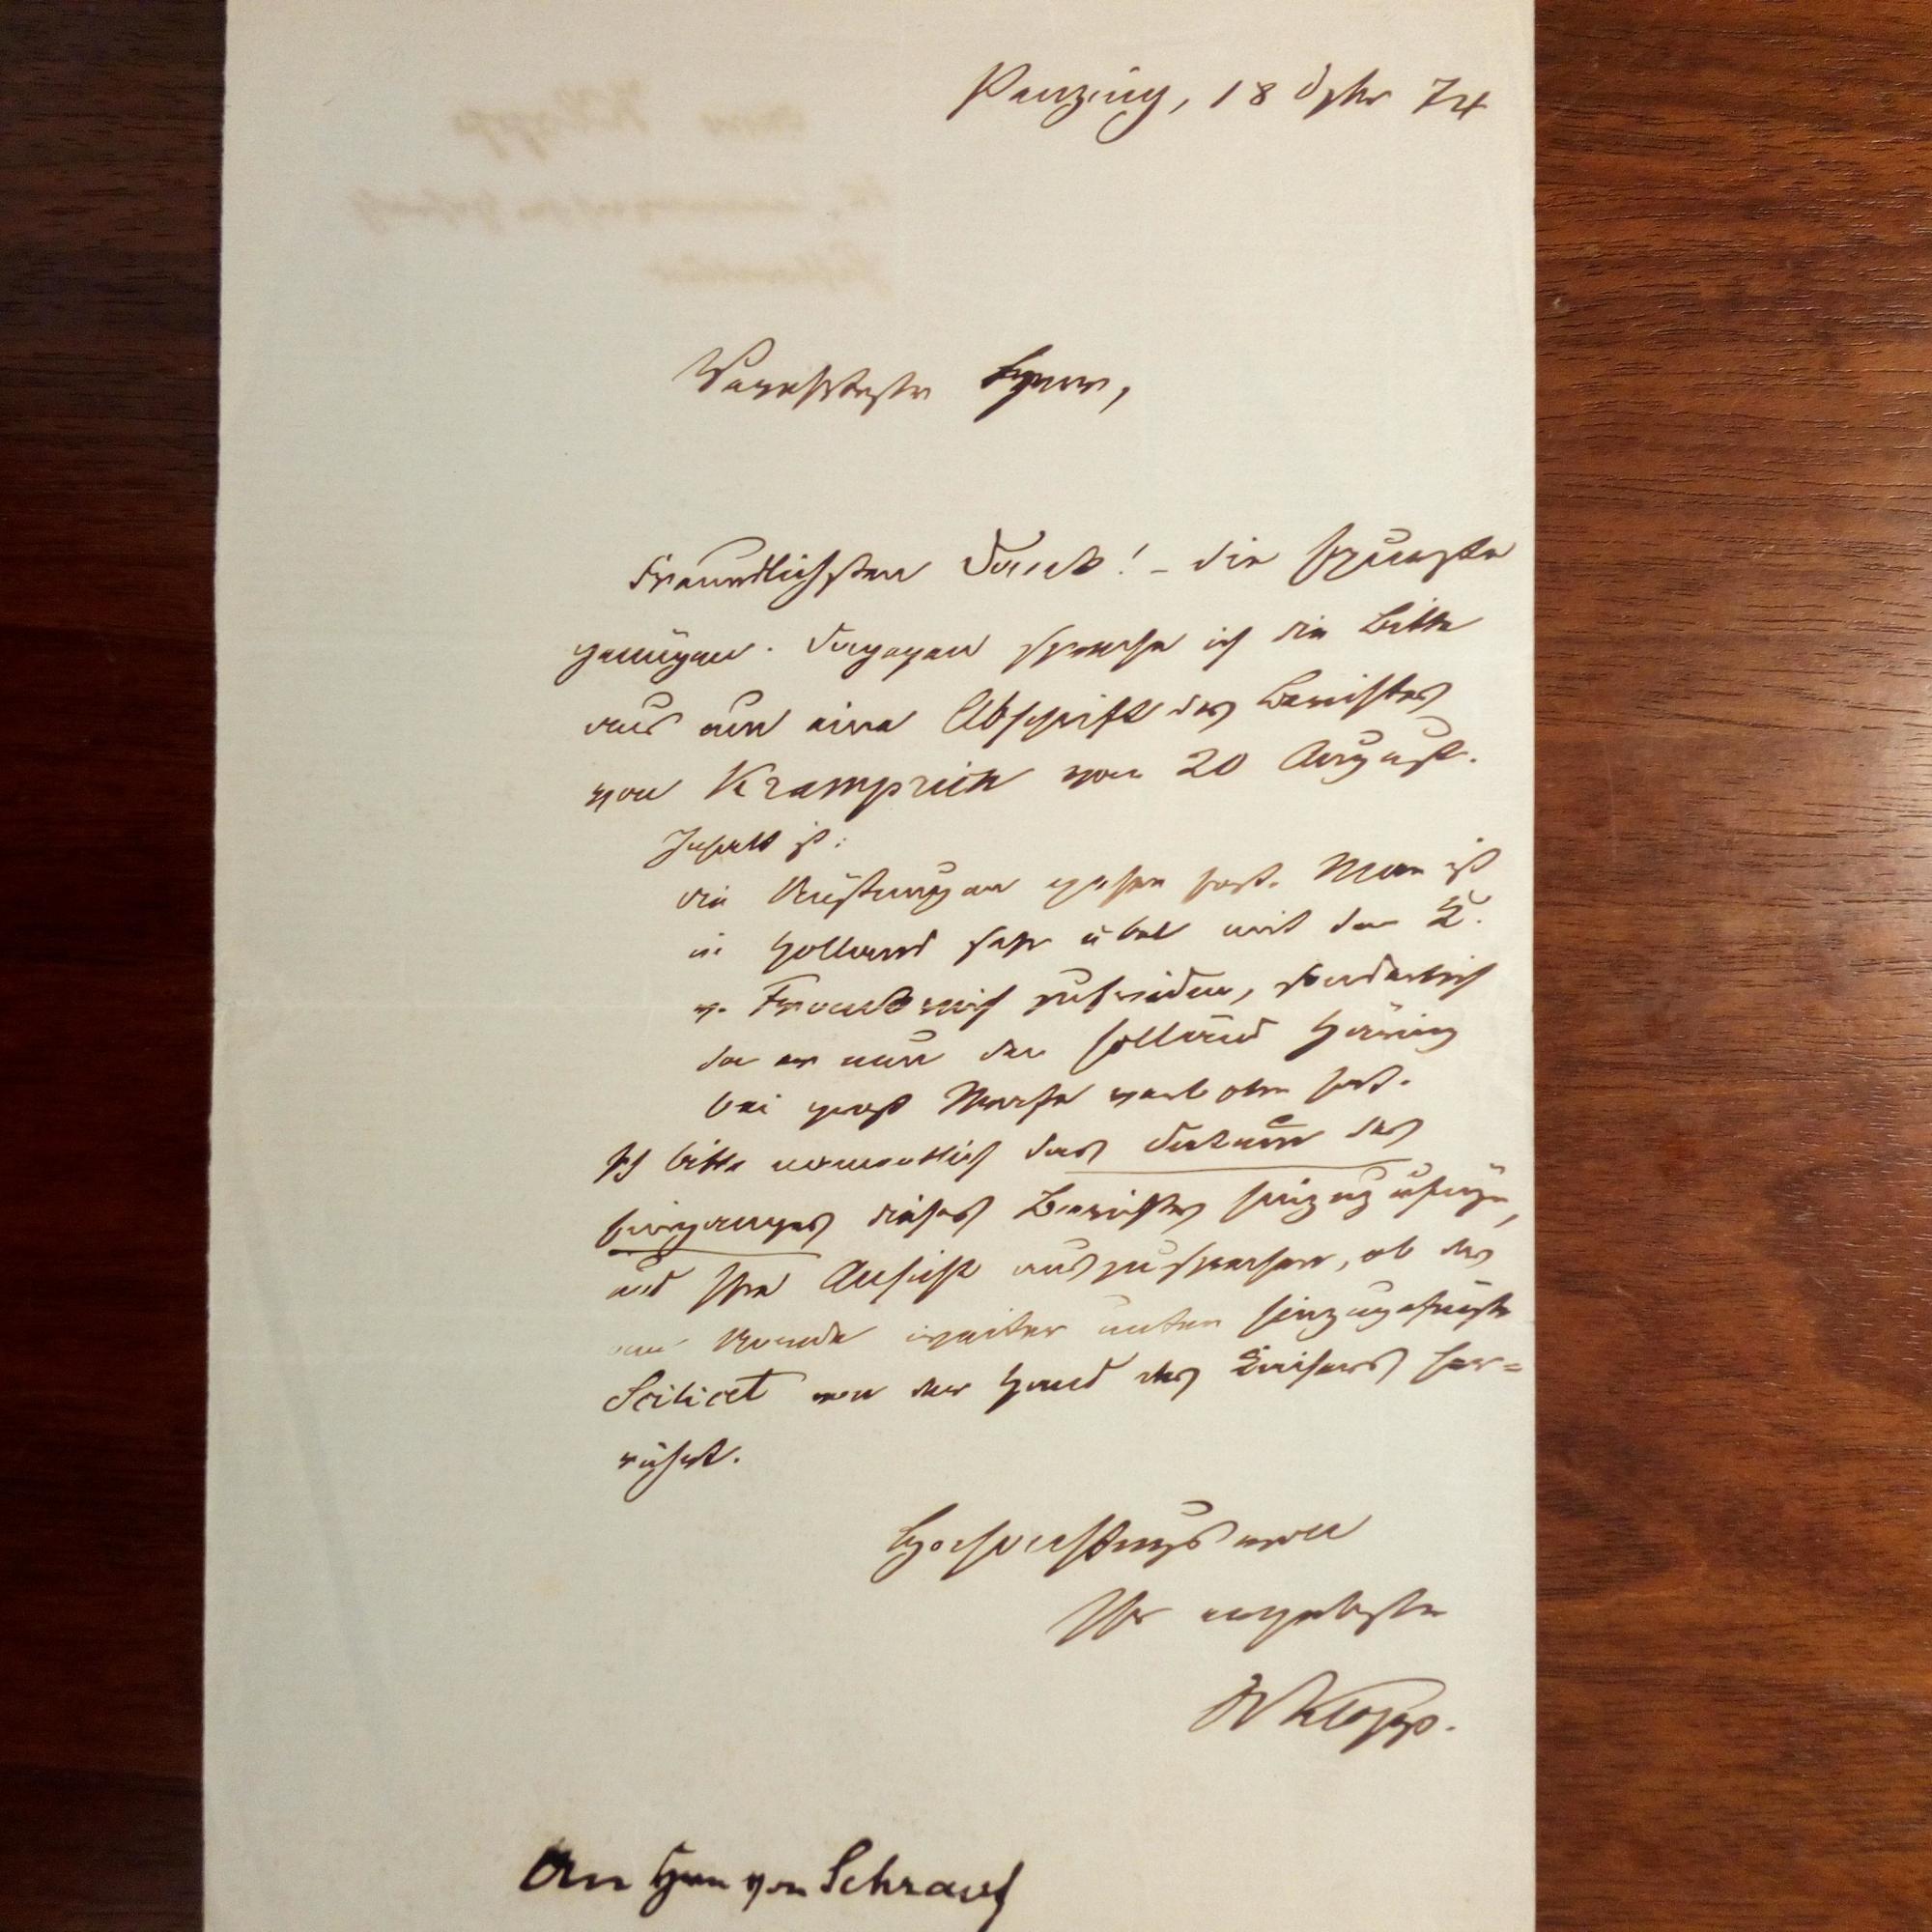 Penzing, 18 Dzbr 74
Verehrtester Herr,
Freundlichsten Dank! – die
genügen. Dagegen spreche ich die Bitte
aus um eine Abschrift des Berichtes
von Kramprich vom 20 August.
Inhalt ist:
die Rüstungen gehen fort. Man ist
in Holland sehr übel mit dem K.
v. Frankreich zufrieden, sonderlich
da er nun den holländ Häring
bei groß verboten hat.
Ich bitte namentlich das Datum des
Einganges dieses Berichtes hinzuzufügen,
und Ihre Ansicht auszusprechen, ob das
am Rande weiter unten hinzugefügte
Scilicet von der Hand des Kaisers her=
rührt.
Hochachtungsvoll
Ihr ergebenster
OKlopp.
An Herrn von Schrauf